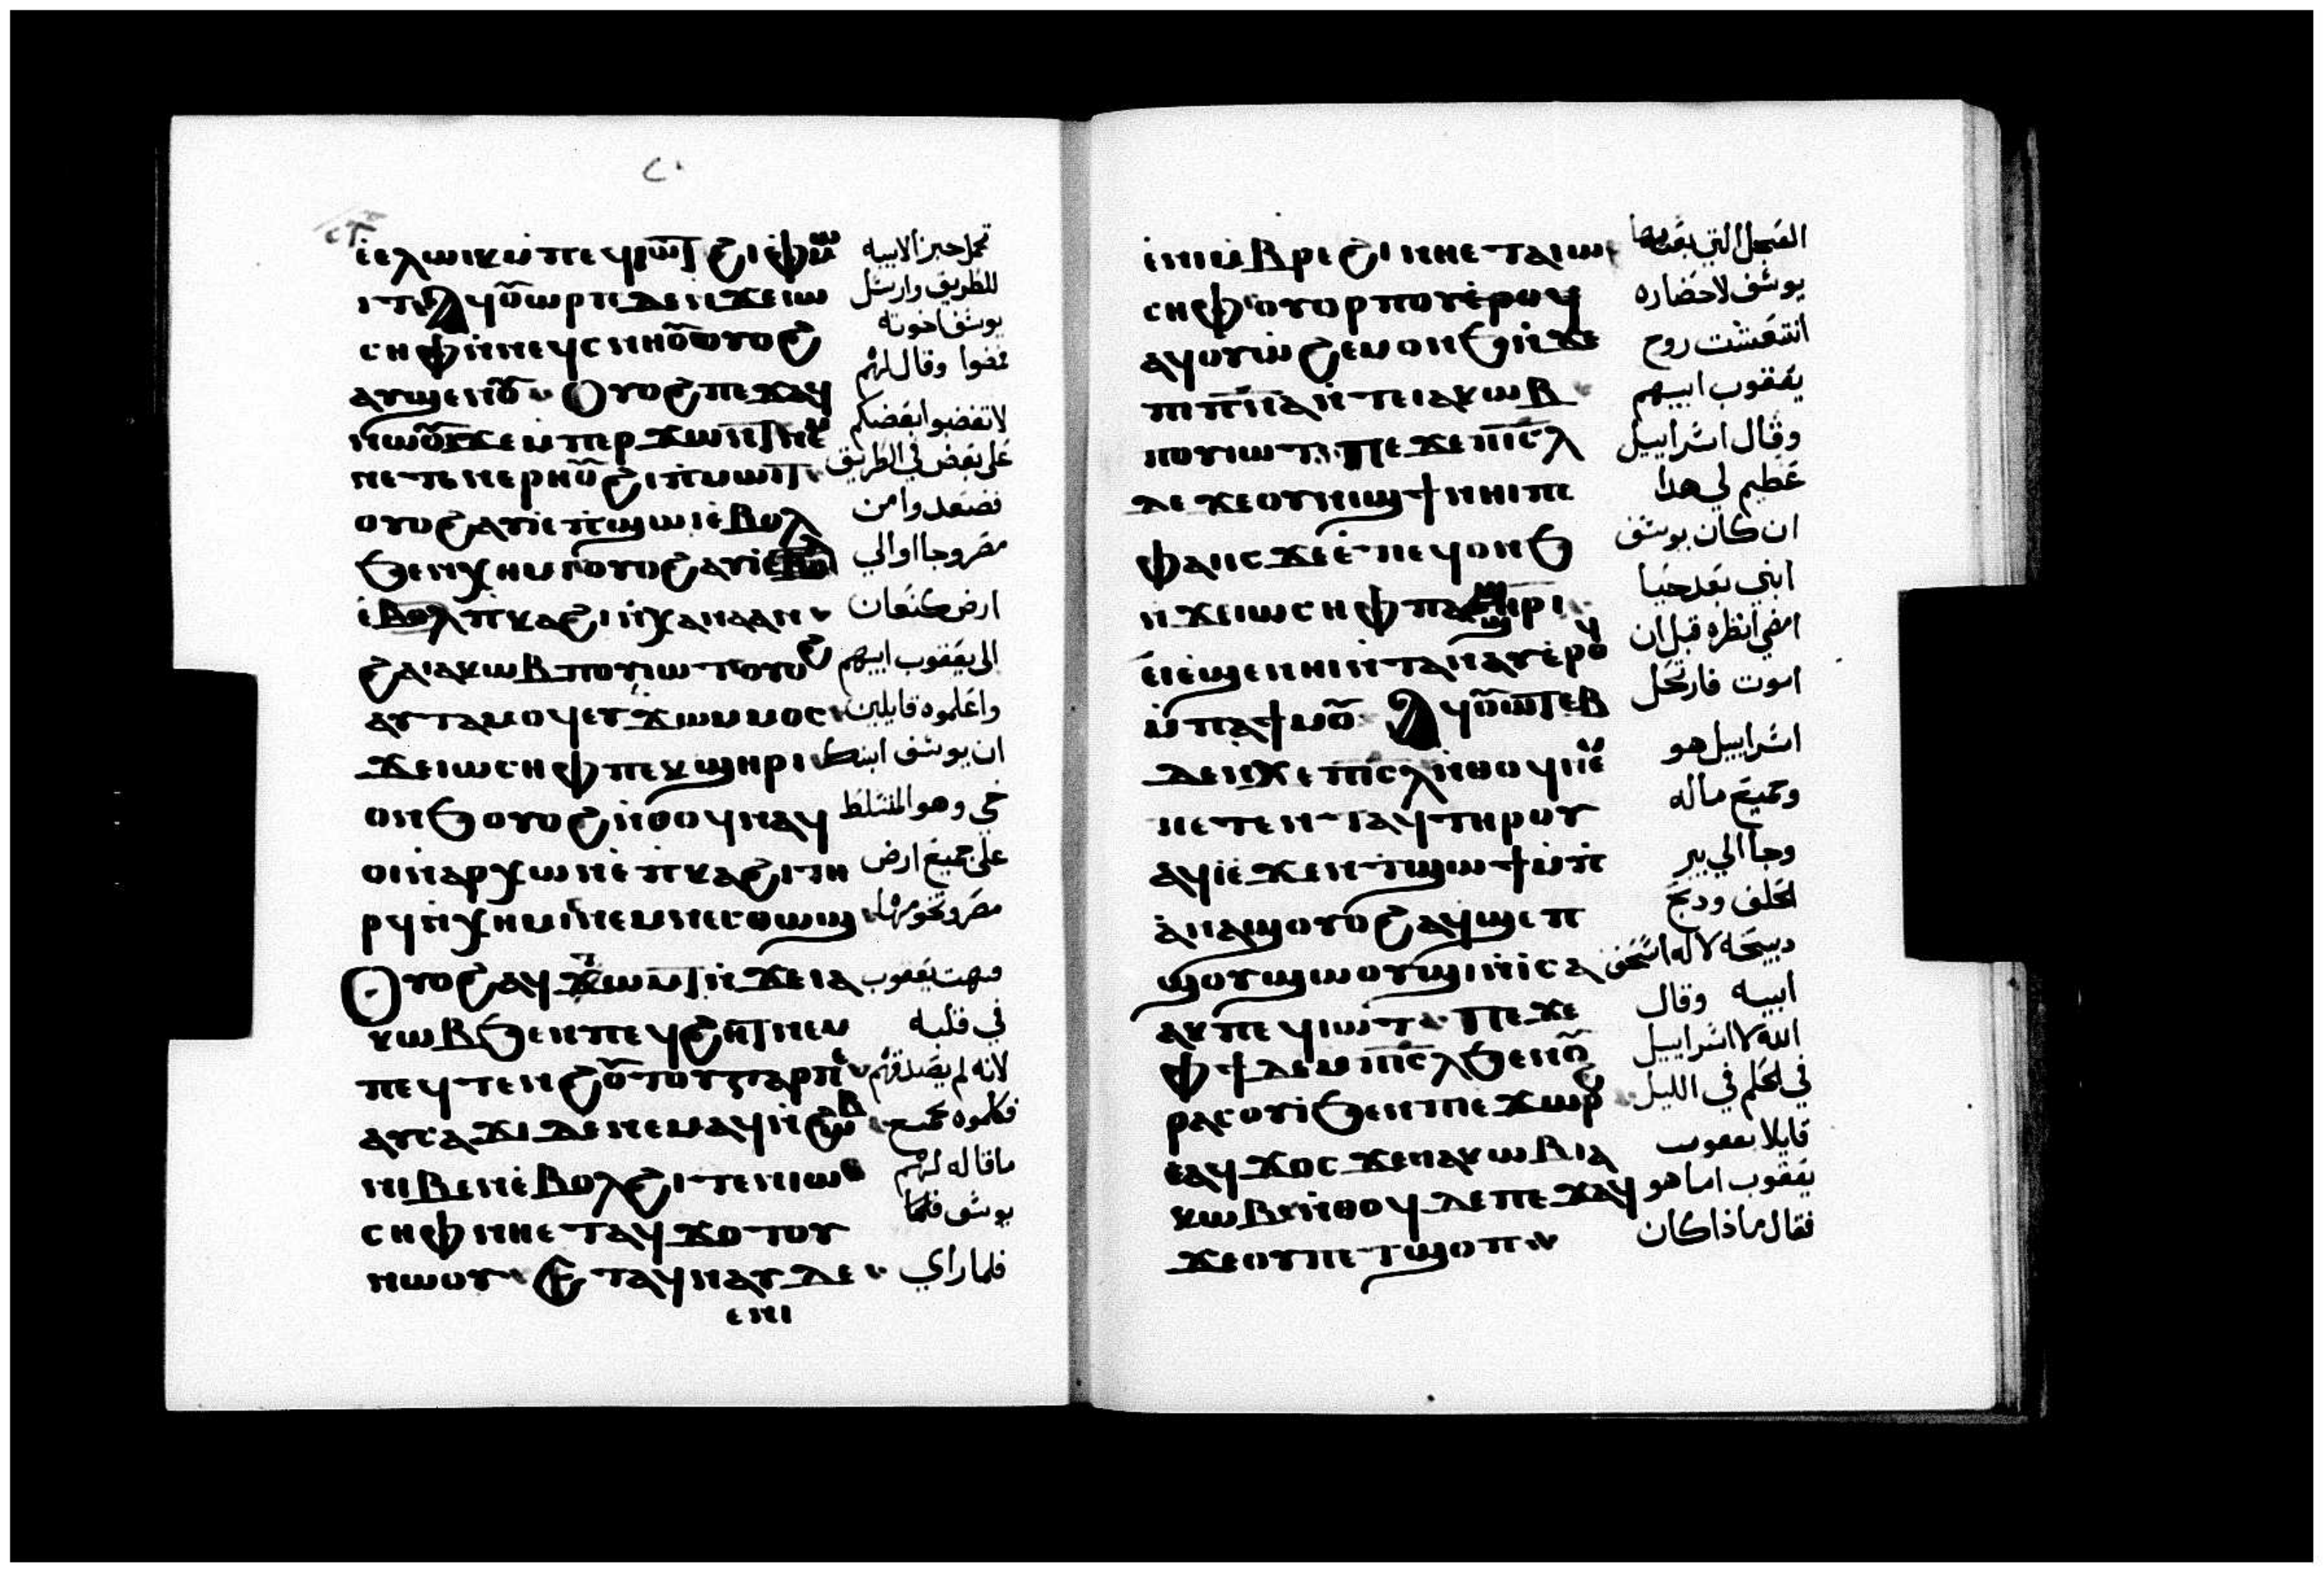 ٢٠
ⲉ̀ⲉⲗⲱⲓⲕ ⲙ̀ⲡⲉϥⲓⲱⲧ ϩⲓⲫⲙⲱ
ⲓⲧ ⲁϥⲟⲩⲱⲣⲡ ⲇⲉ ⲛ̀ϫⲉ ⲓⲱ
ⲥⲏⲫ ⲛ̀ⲛⲉϥⲥⲛⲏⲟⲩ ⲟⲩⲟϩ
ⲁⲩϣⲉⲛⲱⲟⲩ Ⲟⲩⲟϩ ⲡⲉϫⲁϥ
ⲛⲱⲟⲩ ϫⲉ ⲙ̀ⲡⲉⲣϫⲱⲛⲧ ⲛⲉⲙ
ⲛⲉⲧⲉⲛⲉⲣⲏⲟⲩ ϩⲓ ⲡⲓⲙⲱⲓⲧ
ⲟⲩⲟϩ ⲁⲩⲓ̀ ⲉ̀ⲡϣⲱⲓ ⲉ̀ⲃⲟⲗ
ϧⲉⲛ ⲭⲏⲙⲓ ⲟⲩⲟϩ ⲁⲩⲓ̀
ⲉ̀ⲃⲟⲗ ⲡⲕⲁϩⲓ ⲛ̀ⲭⲁⲛⲁⲁⲛ
ϩⲁ ⲓⲁⲕⲱⲃ ⲡⲟⲩⲓⲱⲧ ⲟⲩⲟϩ
ⲁⲩⲧⲁⲙⲟϥ ⲉⲩϫⲱ ⲙ̀ⲙⲟⲥ
ϫⲉ ⲓⲱⲥⲏⲫ ⲡⲉⲕϣⲏⲣⲓ
ⲟⲛϧ ⲟⲩⲟϩ ⲛ̀ⲑⲟϥ ⲛⲁϥ
ⲟⲓ ⲛ̀ⲁⲣⲭⲱⲛ ⲉ̀ⲡⲕⲁϩⲓ ⲧⲏ
ⲣϥ ⲛ̀ⲭⲏⲙⲓ ⲛⲉⲙ ⲛⲉⲥⲑⲱϣ
Ⲟⲩⲟϩ ⲁϥϫⲱⲙⲧ ⲛ̀ϫⲉ ⲓⲁ
ⲕⲱⲃ ϧⲉⲛ ⲡⲉϥϩⲏⲧ ⲛⲉⲙ
ⲡⲉϥⲧⲉⲛϩⲟⲩⲧⲟⲩ ⲅⲁⲣ ⲡⲉ
ⲁⲩⲥⲁϫⲓ ⲇⲉ ⲛⲉⲙⲁϥ ⲛ̀ϩⲱⲃ
ⲛⲓⲃⲉⲛ ⲉ̀ⲃⲟⲗϩⲓⲧⲉⲛ ⲓⲱ
ⲥⲏⲫ ⲛⲏⲉⲧⲁϥϫⲟⲧⲟⲩ
ⲛⲱⲟⲩ Ⲉⲧⲁϥⲛⲁⲩ ⲇⲉ
ⲉⲛⲓ
تحمل خبزا لابيه
للطريق وارسل
يوسف اخوته
فمضوا وقال لهم
لا تغضبوا بعضكم
على بعض في الطريق
فصعدوا من
مصر وجاوا الي
ارض كنعان
الى يعقوب ابيهم
واعلموه قايلين
ان يوسف ابنك
حي وهو المتسلط
على جميع ارض
مصر وتخومها
فبهت يعقوب
في قلبه
لانه لم يصدقهم
فكلموه بجميع
ما قاله لهم
يوسف فلما
فلما راي
ⲉ̀ⲛⲓⲙ̀ⲃⲣⲉϩⲓ ⲛⲏⲉⲧⲁ ⲓⲱ
ⲥⲏⲫ ⲟⲩⲟⲣⲡⲟⲩ ⲉ̀ⲣⲟϥ
ⲁϥⲟⲩⲱϩⲉⲙ ⲟⲛϧ ⲛ̀ϫⲉ
ⲡⲓⲡⲛⲁ ⲛ̀ⲧⲉ ⲓⲁⲕⲱⲃ
ⲡⲟⲩⲓⲱⲧ Ⲡⲉϫⲉ ⲡⲓⲥⲗ
ⲇⲉ ϫⲉ ⲟⲩⲛⲓϣϯ ⲛⲏⲓ ⲡⲉ
ⲫⲁⲓ ⲓⲥϫⲉ ⲉ̀ⲧⲉϥⲟⲛϧ
ⲛ̀ϫⲉ ⲓⲱⲥⲏⲫ ⲡⲁϣⲏⲣⲓ
ⲉ̀ⲓⲉ̀ϣⲉⲛⲏⲓ ⲛ̀ⲧⲁⲛⲁⲩ ⲉ̀ⲣⲟϥ
ⲙ̀ⲡⲁϯⲙⲟⲩ Ⲁϥⲟⲩⲱⲧⲉⲃ
ⲇⲉ ⲛ̀ϫⲉ ⲡⲓⲥⲗ ⲛ̀ⲑⲟϥ ⲛⲉⲙ
ⲛⲉⲧⲉⲛⲧⲁϥ ⲧⲏⲣⲟⲩ
ⲁϥⲓ̀ ⲉ̀ϫⲉⲛ ⲧϣⲱϯ ⲙ̀ⲡ
ⲁⲛⲁϣ ⲟⲩⲟϩ ⲁϥϣⲉⲡ
ϣⲟⲩϣⲱⲟⲩϣⲓ ⲛ̀ⲓⲥⲁ
ⲁⲕ ⲡⲉϥⲓⲱⲧ Ⲡⲉϫⲉ
ⲫϯ ⲇⲉ ⲙ̀ⲡⲓⲥⲗ ϧⲉⲛ ⲟⲩ
ⲣⲁⲥⲟⲩⲓ̀ ϧⲉⲛ ⲡⲓⲉϫⲱⲣϩ
ⲉⲁϥϫⲟⲥ ϫⲉ ⲓⲁⲕⲱⲃ ⲓⲁ
ⲕⲱⲃ ⲛ̀ⲑⲟϥ ⲇⲉ ⲡⲉϫⲁϥ
ϫⲉ ⲟⲩ ⲡⲉⲧϣⲟⲡ
العجل التي بعثها
يوسف لاحضاره
انتعشت روح
يعقوب ابيهم
وقال اسراييل
عظيم لي هذا
ان كان يوسف
ابني بعد حيا
امضي انظره قبل ان
اموت فارتحل
اسراييل هو
وجميع ماله
وجا الي بير
الحلف ودبح
دبيحه لاله اسحق
ابيه وقال
الله لاسراييل
في الحلم في الليل
قايلا يعقوب
يعقوب اما هو
فقال ماذا كان